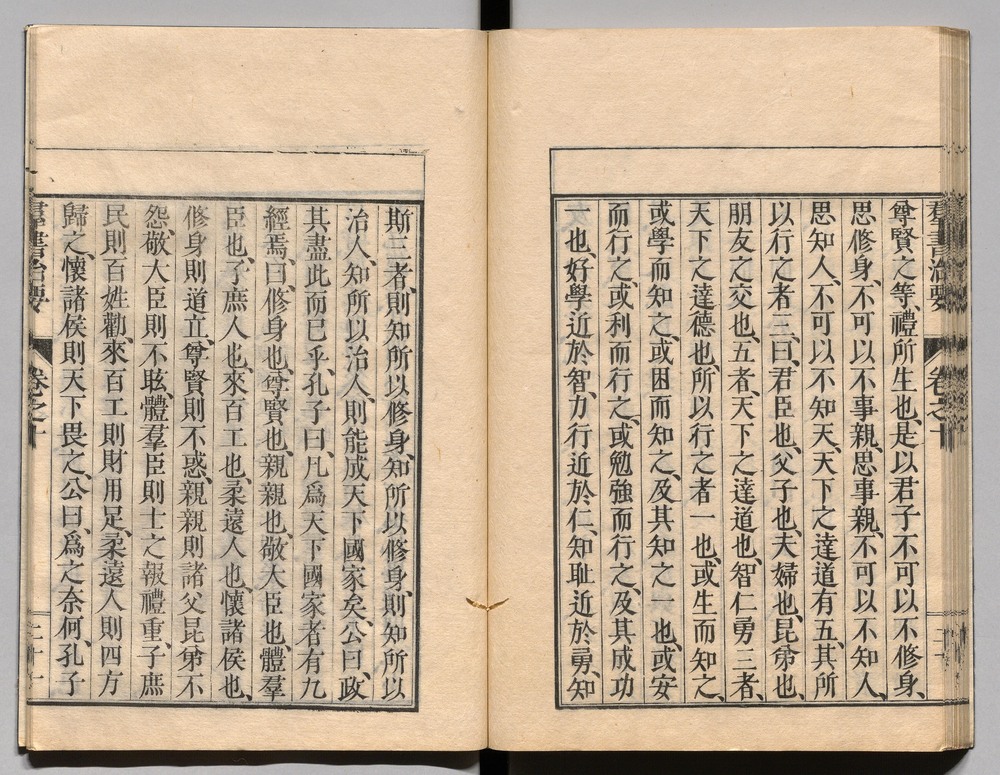 尊賢之等、禮所生也、是以君子不可以不修身、
思修身、不可以不事親、思事親、不可以不知人、
思知人、不可以不知天、天下之達道有五、其所
以行之者三、曰、君臣也、父子也、夫婦也、昆弟也、
朋友之交也、五者、天下之達道也、智仁勇三者、
天下之達德也、所以行之者一也、或生而知之、
或學而知之、或困而知之、及其知之一也、或安
而行之、或利而行之、或勉強而行之、及其成功
一也、好學近於智、力行近於仁、知恥近於勇、知
斯三者、則知所以修身、知所以修身、則知所以
治人、知所以治人、則能成天下國家矣、公曰、政
其盡此而已乎、孔子曰、凡爲天下國家者有九
經焉、曰、修身也、尊賢也、親親也、敬大臣也、體羣
臣也、子庶人也、來百工也、柔遠人也、懷諸侯也、
修身則道立、尊賢則不惑、親親則諸父昆弟不
怨、敬大臣則不眩、體羣臣則士之報禮重、子庶
民則百姓勸、來百工則財用足、柔遠人則四方
歸之、懷諸侯則天下畏之、公曰、爲之奈何、孔子
羣書治要 卷之十